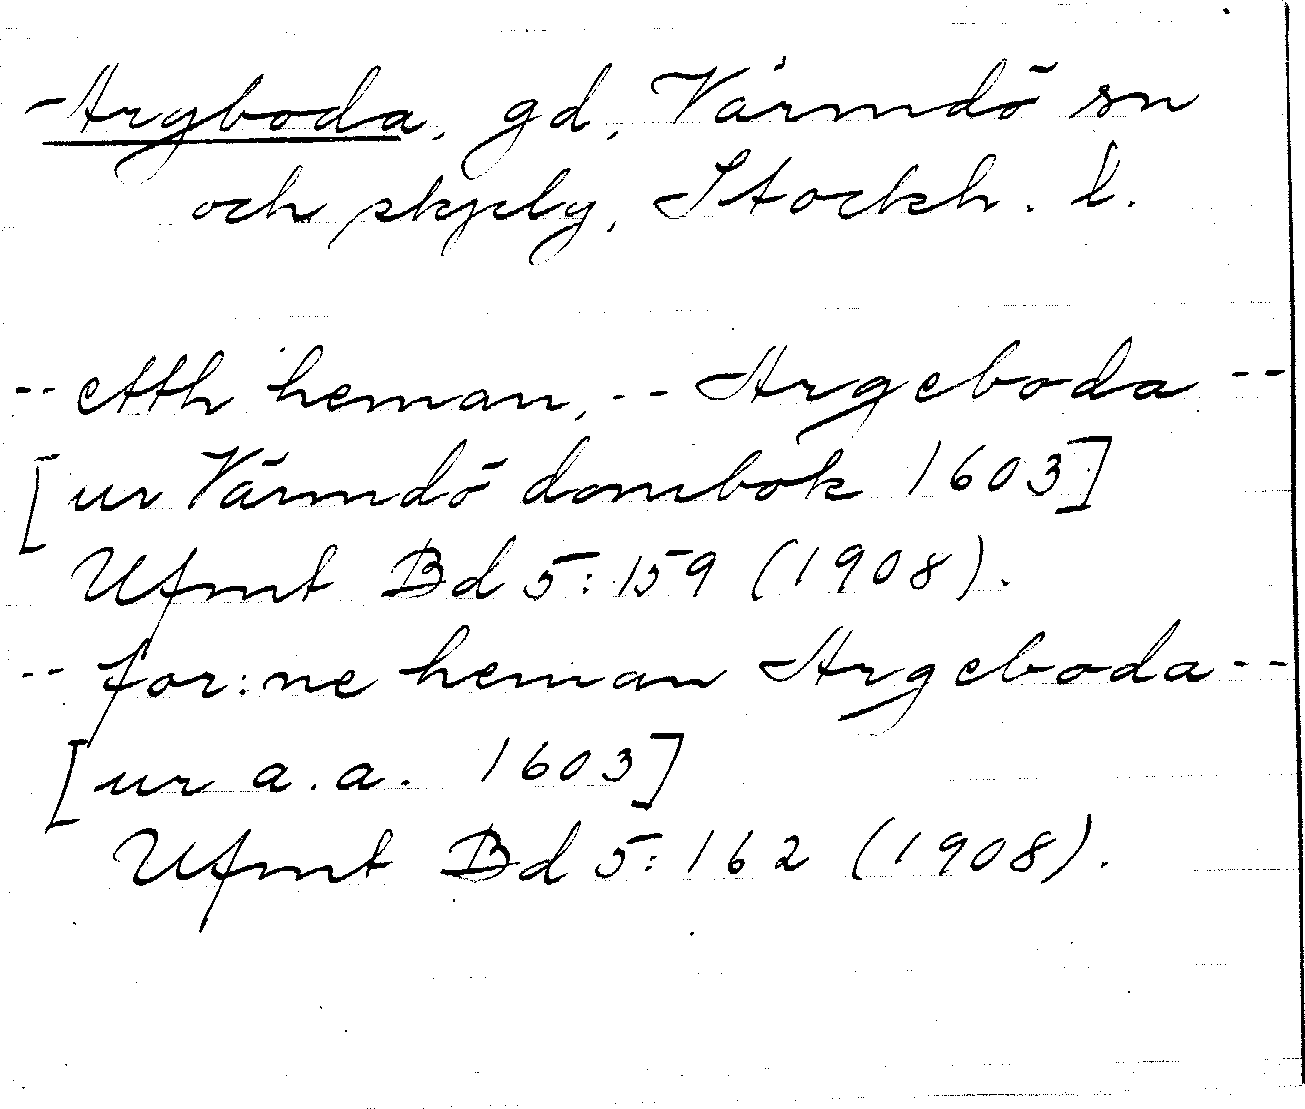 Argboda, gd, Värmdö sn
och skpsly, Stockh. l.
-- etth heman, -- Argeboda --
[ur Värmdö dombok 1603]
Ufmt Bd 5:159 (1908).
-- for:ne heman Argeboda --
[ur a.a. 1603]
Ufmt Bd 5:162 (1908).